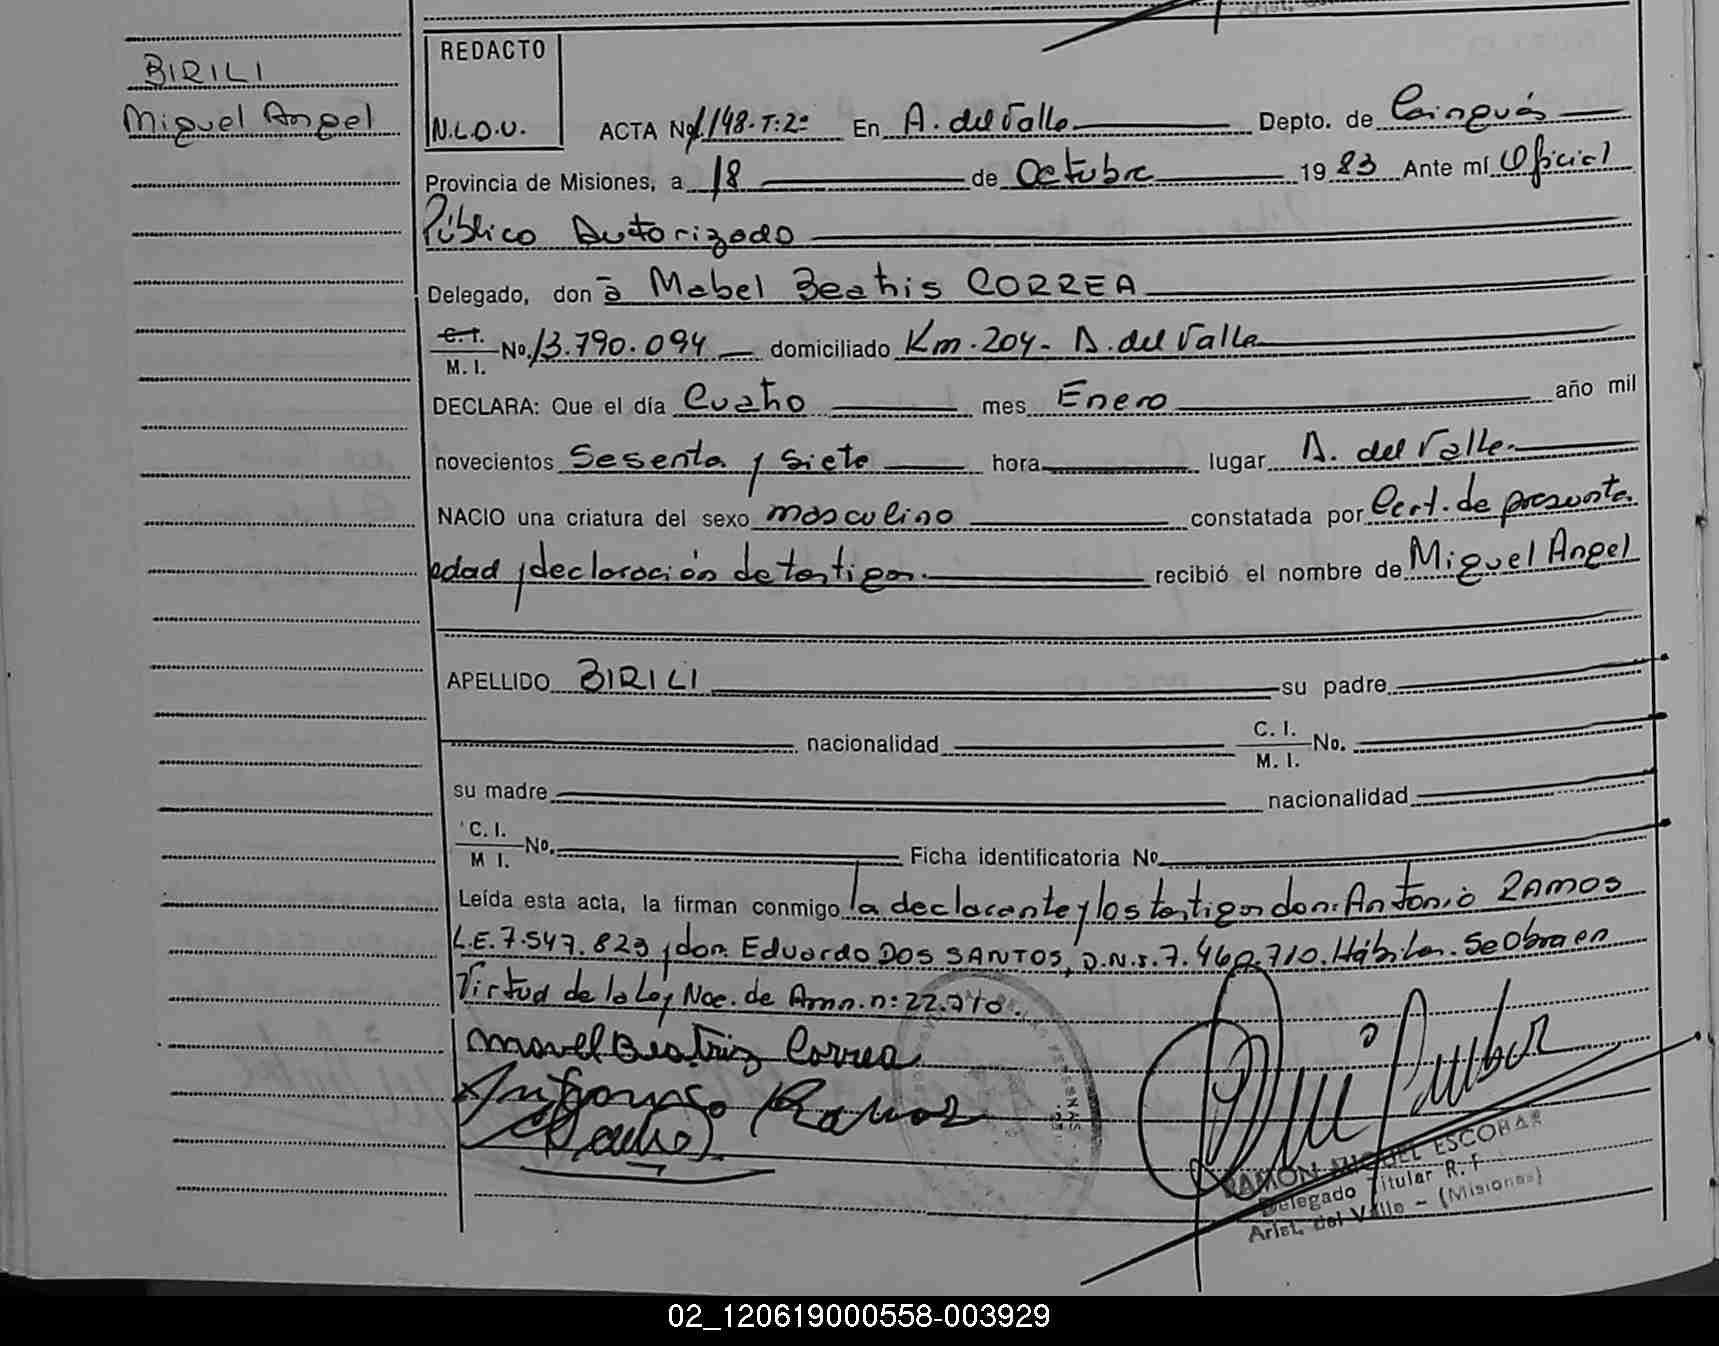 BIRILI
Miguel Angel
REDACTO
N.L.O.U.
ACTA No 1148-T:2º En A. del Valle Depto. de Cainguás
Provincia de Misiones, a 18 de Octubre 1983 Ante mí Oficial
Público Autorizado
Delegado, don a Mabel Beatris CORREA
C. I.
M. I. No. 13.790.094 domiciliado Km. 204- A. del Valle
DECLARA: Que el día Cuatro mes Enero año mil
novecientos Sesenta y Siete hora lugar A. del Valle
NACIO una criatura del sexo masculino constatada por Cert. de presunta
edad y declaración de testigos. recibió el nombre de Miguel Angel
APELLIDO BIRILI su padre
nacionalidad C. I.
M. I. No.
su madre nacionalidad
C. I.
M I. No. Ficha identificatoria No
Leída esta acta, la firman conmigo la declarante y los testigos don: Antonio RAMOS
L.E. 7.547.823 y don Eduardo DOS SANTOS, D.N.I. 7.460.710. Hábiles. Se Obra en
Virtud de la Ley Nac. de Amn. n: 22.710.
Beatriz Correa
Ramos
RAMON MIGUEL ESCOBAR
Delegado Titular R. P.
Arist. del Valle - (Misiones)
02_120619000558-003929